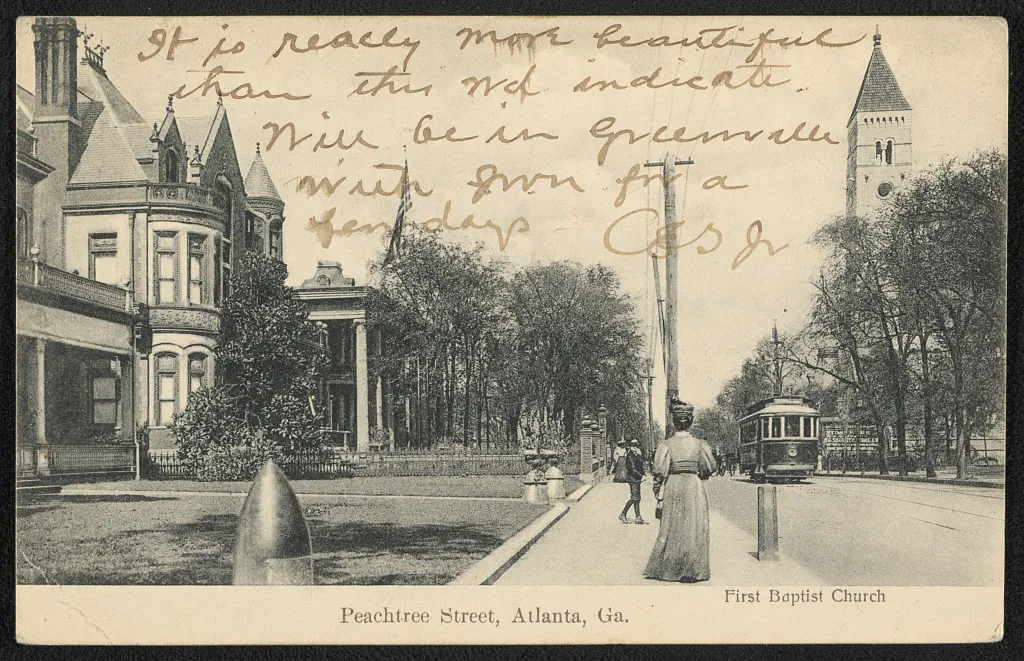 It is really more beautiful
than this wd indicate.
Will be in Greenville
with you for a
few days
CES Jr
First Baptist Church
Peachtree Street, Atlanta, Ga.